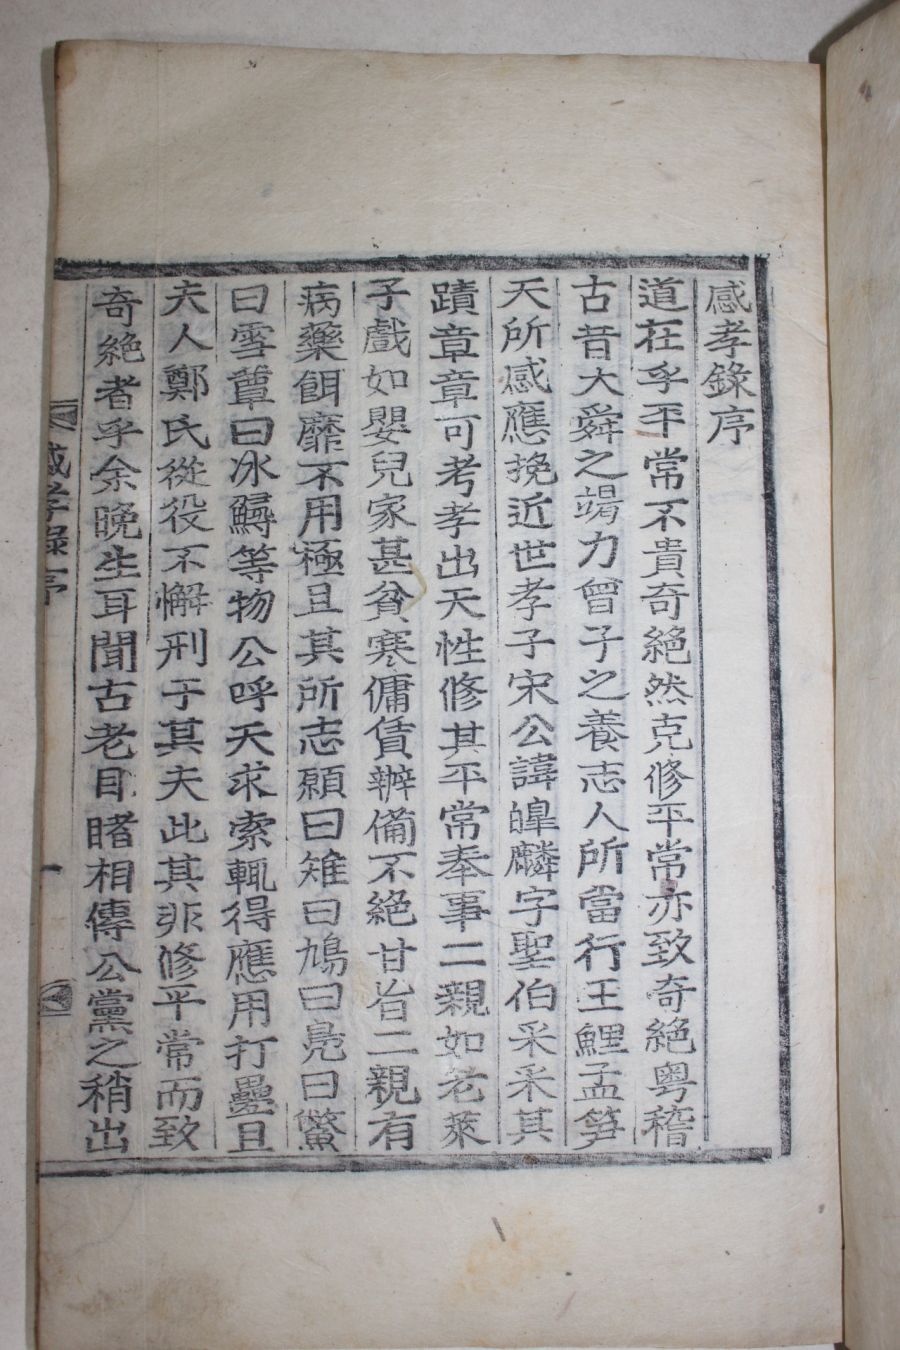 感孝錄序
道在乎平常不貴奇絕然克修平常亦致奇絕粤稽
古昔大舜之竭力曾子之養志人所當行王鯉孟笋
天所感應挽近世孝子宋公諱皥麟字聖伯采采其
蹟章章可考孝出天性修其平常奉事二親如老萊
子戲如嬰兒家甚貧寒傭賃辦備不絕甘旨二親有
病藥餌靡不用極且其所志願曰雉曰鳩曰鳧曰鱉
曰雪蕈曰氷鱘等物公呼天求索輒得應用打疊且
夫人鄭氏從役不懈刑于其夫此其非修平常而致
奇絕者乎余晩生耳聞古老目睹相傳公黨之稍出
感孝錄序
一